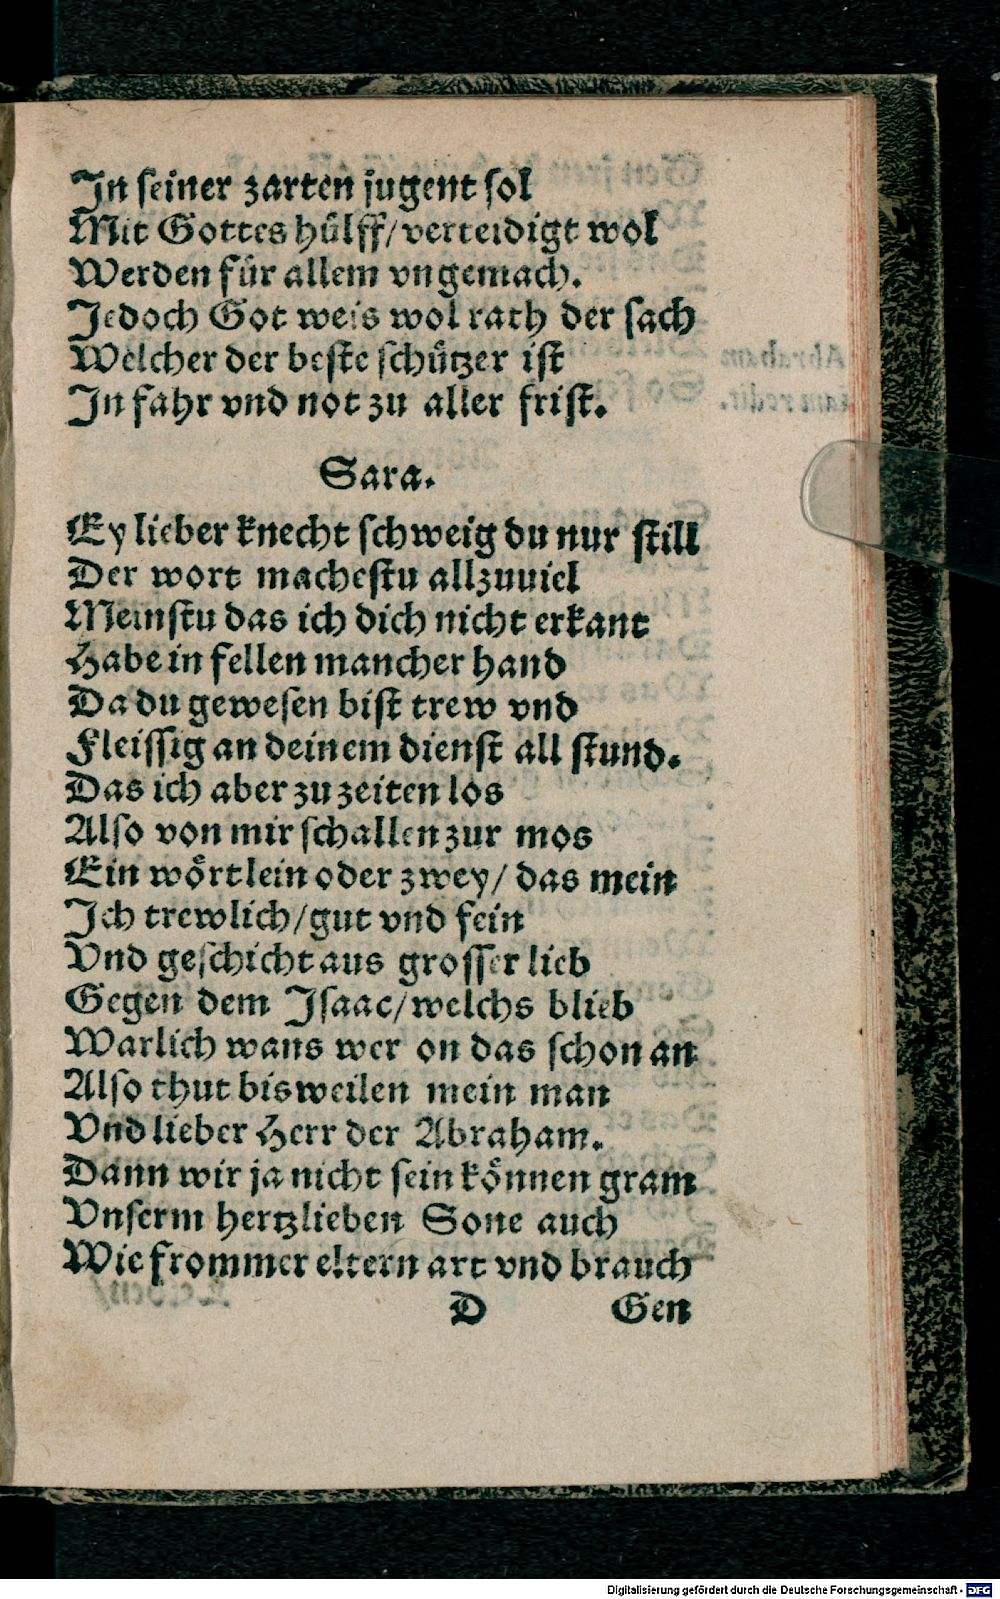 In seiner zarten jugent sol
Mit Gottes hülff/verteidigt wol
Werden für allem vngemach.
Jedoch Got weis wol rath der sach
Welcher der beste schützer ist
In fahr vnd not zu aller frist.
Sara.
Ey lieber knecht schweig du nur still
Der wort machestu allzuuiel
Meinstu das ich dich nicht erkant
Habe in fellen mancher hand
Da du gewesen bist trew vnd
Fleissig an deinem dienst all stund.
Das ich aber zu zeiten los
Also von mir schallen zur mos
Ein wörtlein oder zwey/ das mein
Ich trewlich/gut vnd fein
Vnd geschicht aus grosser lieb
Gegen dem Isaac/welchs blieb
Warlich wans wer on das schon an
Also thut bisweilen mein man
Vnd lieber Herr der Abraham.
Dann wir ja nicht sein können gram
Vnserm hertzlieben Sone auch
Wie frommer eltern art vnd brauch
D Gen
Digitalisierung gefördert durch die Deutsche Forschungsgemeinschaft - DFG